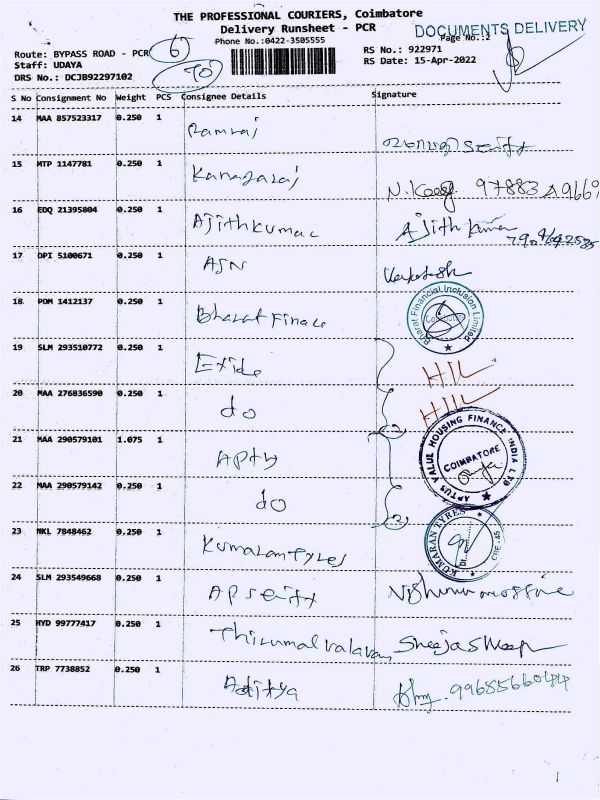 THE PROFESSIONAL COURIERS, Coimbatore
Delivery Runsheet - PCR
DOCUMENTS DELIVERY
Phone No.:0422-3505555
Page No.:2
Route: BYPASS ROAD - PCR
6
RS No.: 922971
Staff: UDAYA
RS Date: 15-Apr-2022
70
DRS No.: DCJB92297102
S No Consignment No Weight PCS Consignee Details Signature
14 MAA 857523317 0.250 1 Ramraj
15 MTP 1147781 0.250 1 Kanagaraj
16 EDQ 21395804 0.250 1 Ajithkumar Ajith Kumar
17 OPI 5100671 0.250 1 AJN Venkatesh
18 PDM 1412137 0.250 1 Bharat Finance
Bharat Financial Inclusion Limited
19 SLM 293510772 0.250 1 Exide
20 MAA 276836590 0.250 1 do
21 MAA 290579101 1.075 1 Apty
APTUS VALUE HOUSING FINANCE INDIA LTD
COIMBATORE
22 MAA 290579142 0.250 1 do
23 NKL 7848462 0.250 1 Kumaran Tyres
KUMARAN TYRES
24 SLM 293549668 0.250 1
25 HYD 99777417 0.250 1 Thirumalvalavan
26 TRP 7738852 0.250 1 Aditya